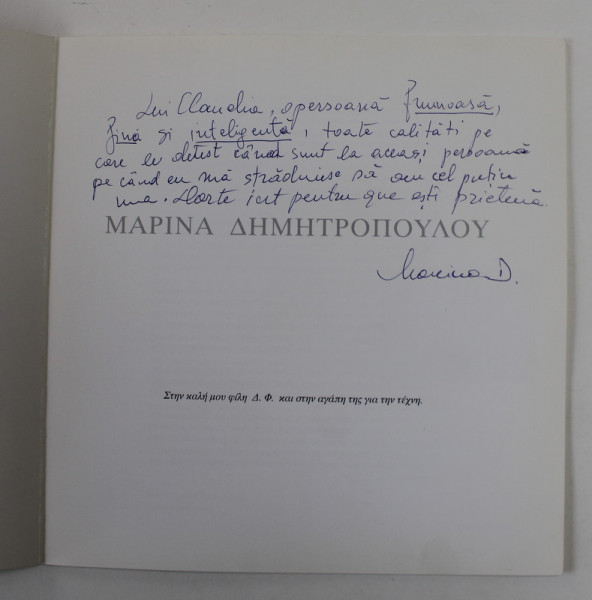 Lui Claudia, o persoană frumoasă,
fină și inteligentă, toate calități pe
care le detest când sunt la aceași persoană
pe când eu mă străduiesc să am cel puțin
una. Mort pentru que ești prietenă.
ΜΑΡΙΝΑ ΔΗΜΗΤΡΟΠΟΥΛΟΥ
Marina D.
Στην καλή μου φίλη Δ. Φ. και στην αγάπη της για την τέχνη.